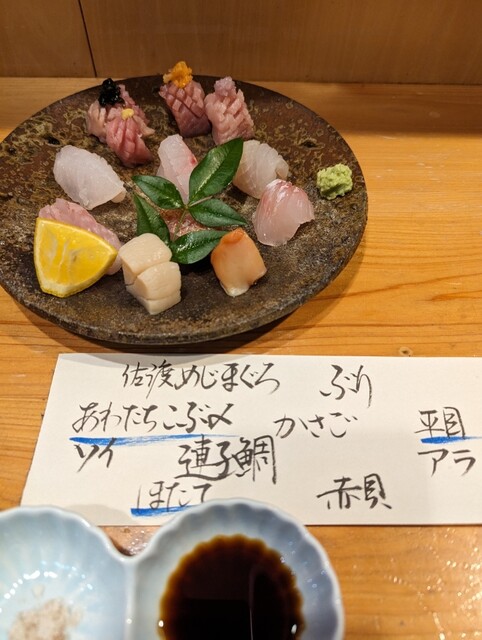 佐渡めじまぐろ ぶり
あわたちこぶ〆 かさご 平目
ソイ 連子鯛 アラ
ほたて 赤貝